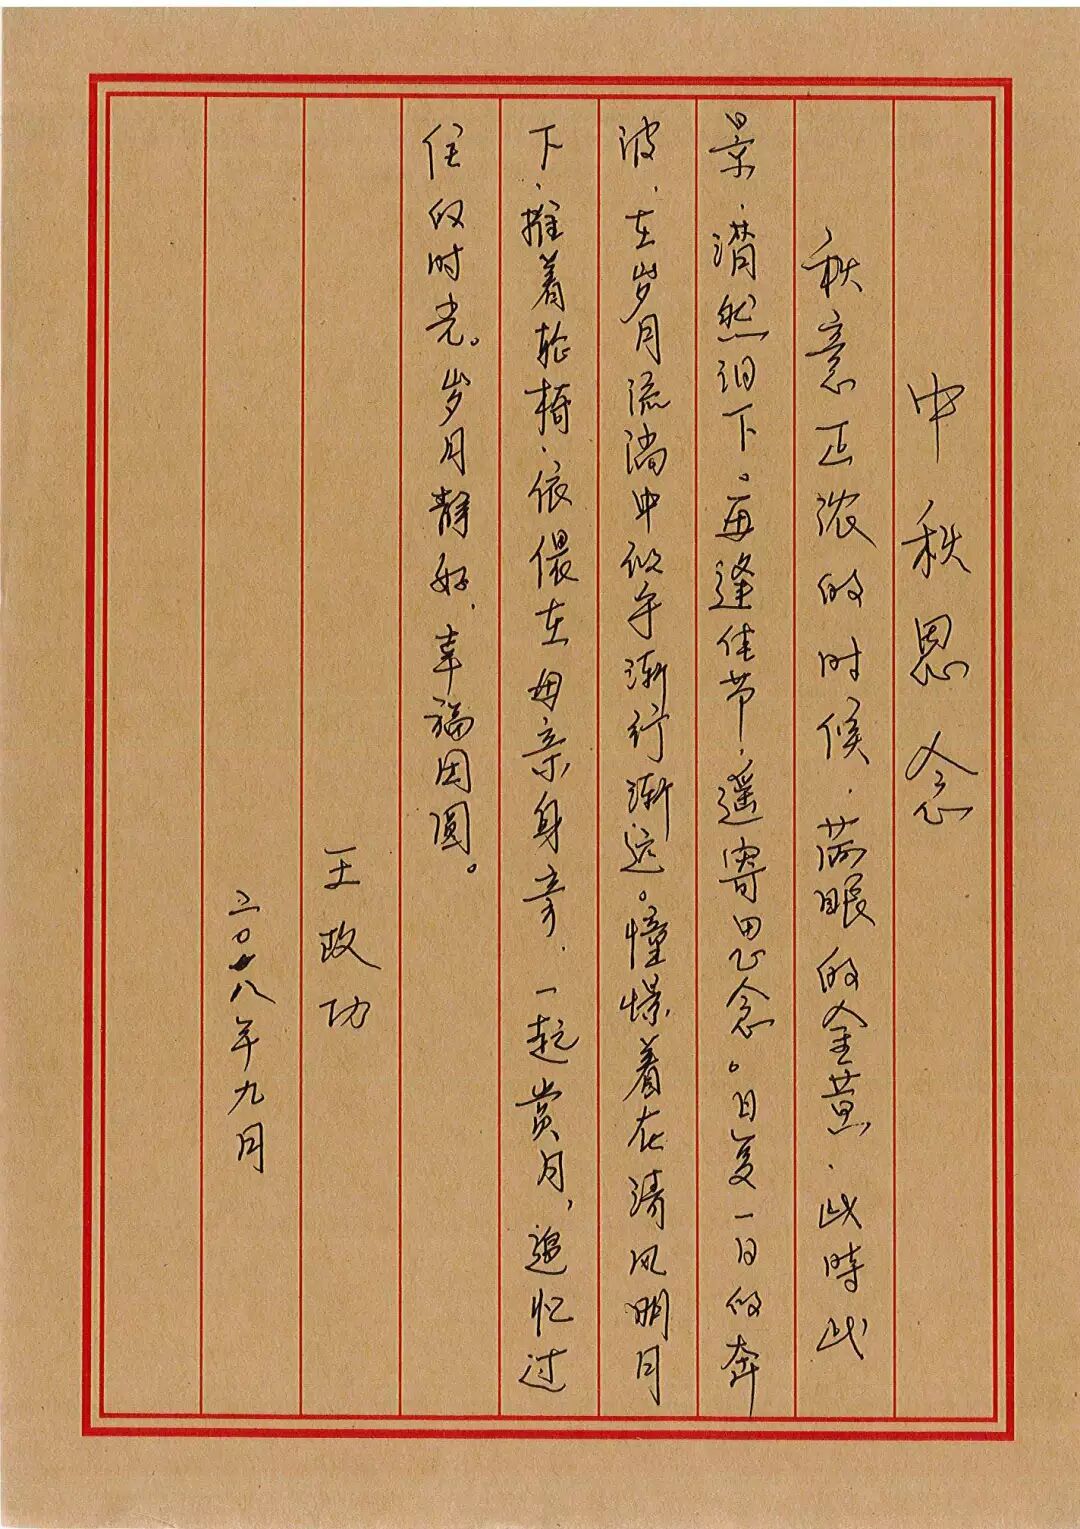 中秋思念
秋意正浓的时候，满眼的金黄，此時此
景，潸然泪下。每逢佳节，遥寄思念。日复一日的奔
波，在岁月流淌中似乎渐行渐远。憧憬着在清风明月
下，推着轮椅，依偎在母亲身旁，一起赏月，追忆过
往的时光。岁月静好，幸福团圆。
王政功
二〇一八年九月